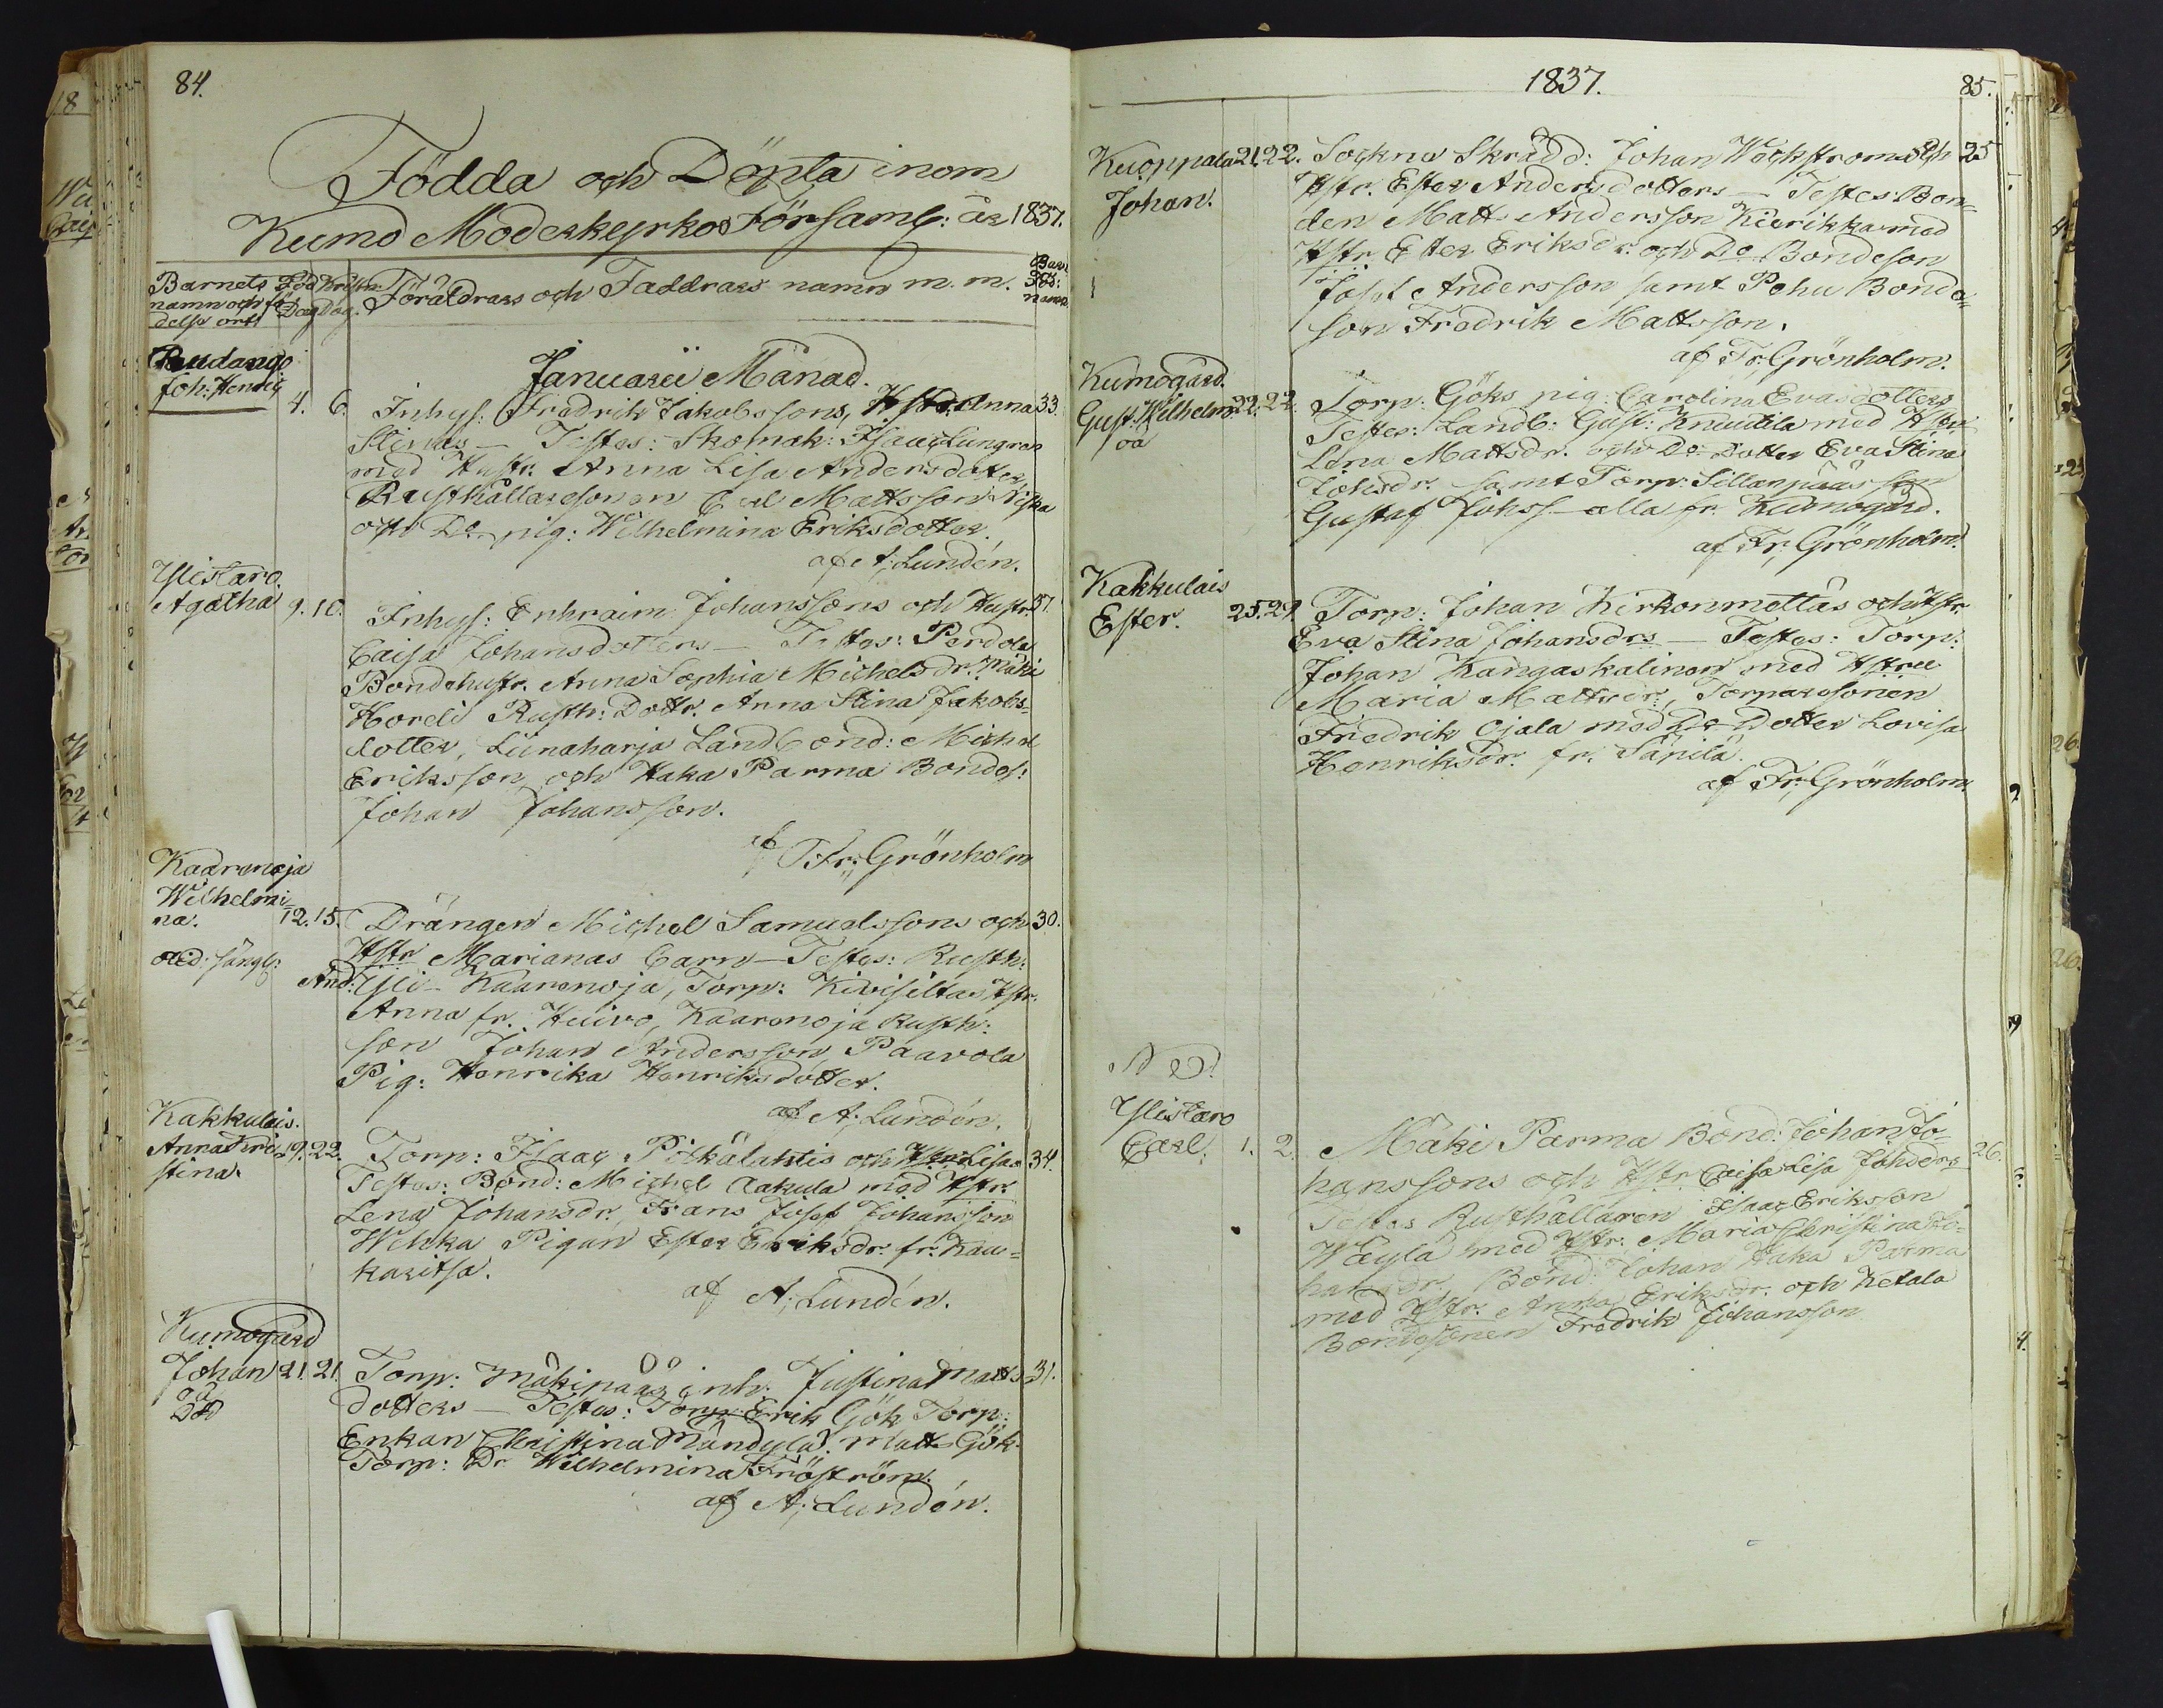 84.
Födda och Döpta inom
Kumo Moderkyrko Församl: år 1837.
Barnets namn och fö
delse ort
Föd Dag
Christn Dag.
Föräldrars och Faddrars namn m. m.
Januarii Månad.
Joh: Henric
4. 6. Inhys: Fredrik Jakobssons, Hstr. Anna 33.
Stinas — Testes: Skomak: Isaac Ljungren
med Hustr. Anna Lisa Andersdotter,
Rusthållaresonen Carl Mattsson
och Do pig: Wilhelmina Eriksdotter.
af A: Lundén.
Ylistaro.
Agatha 9. 10. Inhys: Enhraim Johanssons och Hustr. 37.
Caisa Johansdotters — Testes: Perdola
Bondehustr. Anna Sophia Michelsdr. Mäki
Horeli Rusth: Dottr. Anna Stina Jakobs-
dotter, Liinaharja Landbond: Michel
Eriksson och Haka Parma Bondes:
Johan Johansson.
af Fr: Grönholm
Kaarenoja
Wilhelmi-
na. 12. 15. Drängen Michel Samuelssons och 30.
Hstr Marianas barn — Testes: Rusth:
And: Yli-Kaarenoja, Torp: Kivisiltas Hstr.
Anna fr. Huivo, Kaarenoja Rusth:
son Johan Andersson, Paavola
Pig: Henrika Henriksdotter.
af A: Lundén.
Kakkulais.
Anna Kri-
stina. 19. 22. Torp: Isaac Pitkälahtis och Hstr. Lisas 34.
Testes: Bond: Michel Aakula med Hstr.
Lena Johansdr. Frans Josef Johansson
Wehka Pigan Ester Eriksdr. fr. Kau-
karitsa.
af A: Lundén.
Kumogård
Johan 21. 21. Torp: Mäkipääs inh: Justina Matts 31.
oä
Död
dotters — Testes: Torp: Erik Gök Torp:
Enkan Christina Mändylä. Matts Gök
Torp: Dr Wilhelmina Fröström.
af A: Lundén.
1837.
85.
Kuoppala 21. 22. Sockne Skrädd: Johan Weckstroms och 25
Johan.
Hstr. Ester Andersdotters — Testes Bon-
den Matts Andersson Kivirikka med
Hstr. Ester Eriksdr. och Do Bondeson
Josef Andersson samt Pohu Bonde-
son Fredrik Mattsson.
af Fr: Grönholm.
Kumogård.
Gust: Wilhelm 22. 22. Torp: Göks pig: Carolina Evasdotters
oä
Testes: Landb: Gust: Knuutila med Hstru
Lena Mattsdr. och Do Dotter Eva Stina
Johsdr. samt Torp: Sillanpääs son
Gustaf Johss — alla fr. Kumogård.
af Fr: Grönholm.
Kakkulais
Ester. 25. 29. Torp: Johan Kirkonmettäs och Hstr.
Eva Stina Johansdrs — Testes: Torp:
Johan Kangaskalinon med Hstru
Maria Mattsdr, Torparesonen
Fredrik Ojala med Do Dotter Lovisa
Henriksdr. fr. Säpilä.
af Fr: Grönholm.
Ylistaro
Carl. 1. 2. Mäki Parma Bond: Johan Jo- 26.
hanssons och Hstr. Caisa Lisa Johsdrs
Testes Rusthållaren Isaac Eriksson
Wäylä med Hstr. Maria Christina Jo-
hansdr. Bond: Johan Haka Parma
med Hstr. Anna Eriksdr. och Ketala
Bondesonen Fredrik Johansson